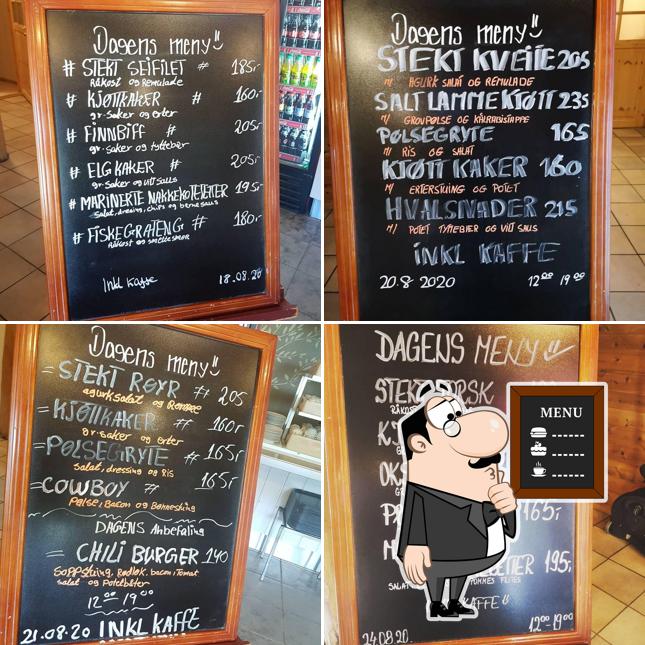 Dagens meny
# STEKT SEIFILET # 185,-
Råkost og Remulade
# KJØTTKAKER # 160,-
gr. saker og erter
# FINNBIFF # 205,-
gr. saker og tyttebær
# ELGKAKER # 205,-
gr. saker og vilt saus
# MARINERTE NAKKEKOTELETTER 195,-
Salat, dressing, chips og berne saus
# FISKEGRATENG # 180,-
Råkost og smeltesmør
Inkl Kaffe 18.08.20
Dagens meny
STEKT KVEITE 205
m/ AGURK SALAT OG REMULADE
SALT LAMMEKJØTT 235
m/ GROVPØLSE OG KÅLRABISTAPPE
PØLSEGRYTE 165
m/ RIS OG SALAT
KJØTT KAKER 160
m/ ERTERSTUING OG POTET
HVALSNADER 215
m/ POTET TYTTEBÆR OG VILT SAUS
INKL KAFFE
20.8 2020 12 00 19 00
Dagens meny
= STEKT RØYR # 205
agurksalat og Rømme
= KJØTTKAKER # 160,-
gr. saker og erter
= PØLSEGRYTE # 165,-
Salat, dressing og Ris
= COWBOY # 165,-
Pølse, Bacon og Bønnesteing
DAGENS Anbefaling
= CHILI BURGER 140
Soppstuing, Rødløk, bacon, Tomat
salat og Potetbåter
12 00 - 19 00
21.08.20 INKL KAFFE
DAGENS MENY
MENU
165,-
195,-
POMMES FRITES
KAFFE
24.08.20 12 00 - 19 00